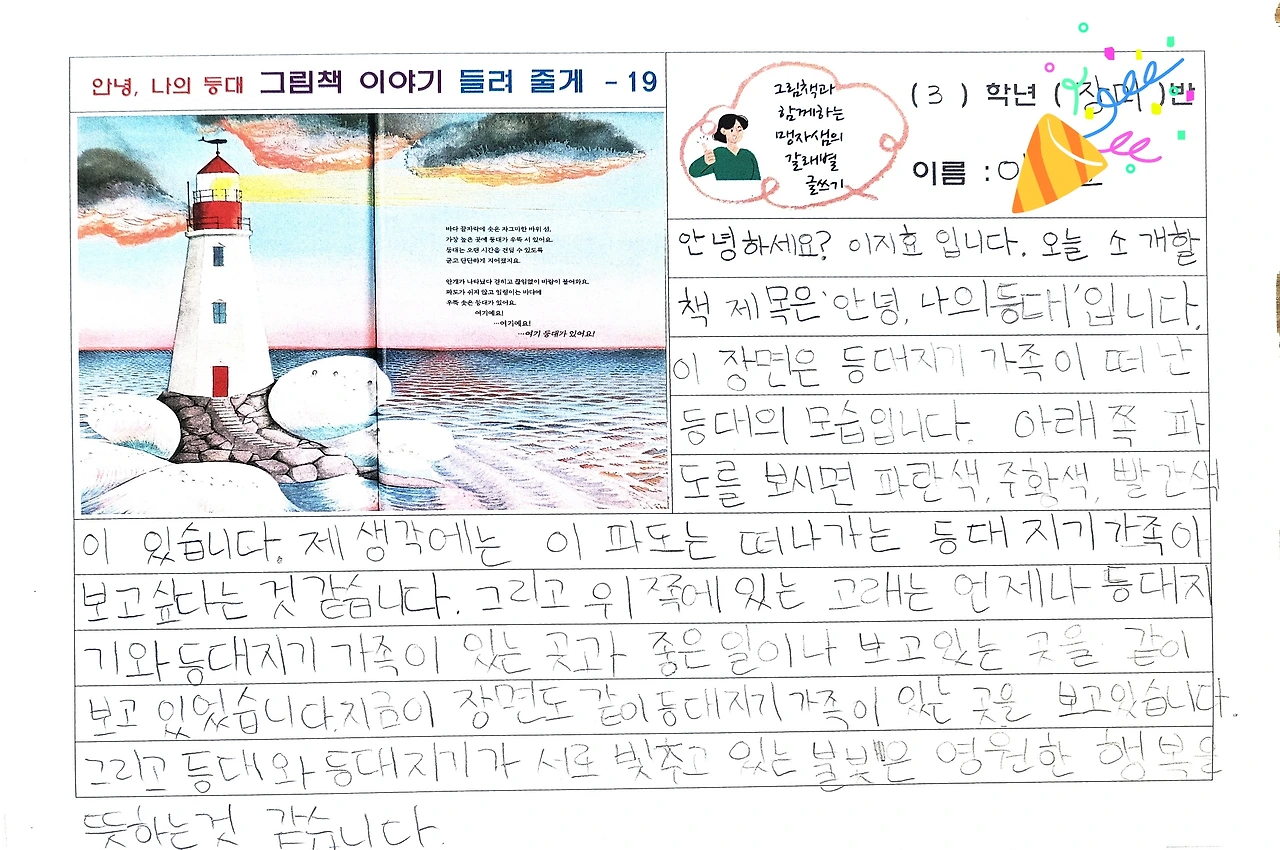 안녕, 나의 등대 그림책 이야기 들려 줄게 - 19
그림책과
함께하는
맹자샘의
갈래별
글쓰기
( 3 ) 학년 ( 장미 )반
이름 :
바다 끝자락에 솟은 자그마한 바위 섬.
가장 높은 곳에 등대가 우뚝 서 있어요.
등대는 오랜 시간을 견딜 수 있도록
굳고 단단하게 지어졌지요.
안개가 나타났다 걷히고 끊임없이 바람이 불어와요.
파도가 쉬지 않고 일렁이는 바다에
우뚝 솟은 등대가 있어요.
여기예요!
…여기예요!
…여기 등대가 있어요!
안녕하세요? 이지효 입니다. 오늘 소개할
책 제목은 '안녕, 나의 등대'입니다.
이 장면은 등대지기 가족이 떠난
등대의 모습입니다. 아래쪽 파
도를 보시면 파란색, 주황색, 빨간색
이 있습니다. 제 생각에는 이 파도는 떠나가는 등대지기가족이
보고싶다는 것 같습니다. 그리고 위쪽에 있는 고래는 언제나 등대지
기와 등대지기 가족이 있는 곳과 좋은 일이나 보고있는 곳을 같이
보고 있었습니다. 지금이 장면도 같이 등대지기 가족이 있는 곳을 보고있습니다.
그리고 등대와 등대지기가 서로 빛추고 있는 불빛은 영원한 행복을
뜻하는것 같습니다.